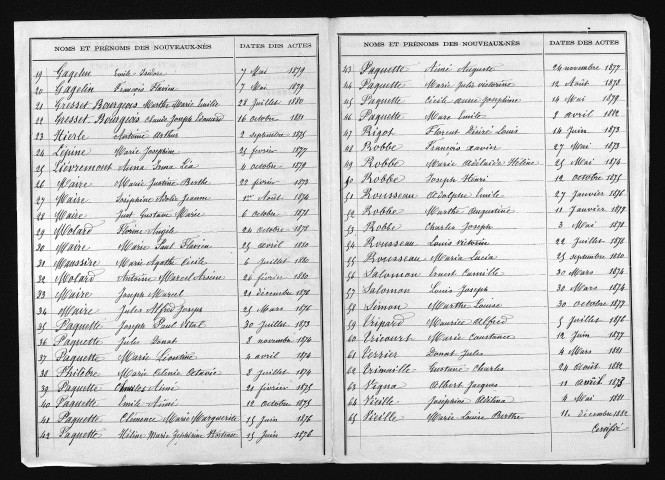 NOMS ET PRÉNOMS DES NOUVEAUX-NÉS DATES DES ACTES
19 Gagelin Emile Isidore 7 Mai 1879
20 Gagelin François Flavien 7 Mai 1879
21 Gresset Bourgeois Marthe Marie Emilie 28 Juillet 1880
22 Gresset Bourgeois Claude Joseph Edouard 16 octobre 1882
23 Hierle Antoine Arthur 2 septembre 1875
24 Lépine Marie Josephine 25 février 1877
25 Lièvremont Anna Irma Léa 4 octobre 1879
26 Maire Marie Justine Berthe 22 février 1873
27 Maire Joséphine Adèle Jeanne 1er Août 1874
28 Maire Just Gustave Marie 6 octobre 1878
29 Molard Florine Angèle 24 octobre 1878
30 Maire Marie Paul Flavien 25 avril 1880
31 Maussire Marie Agathe Cécile 6 Juillet 1880
32 Molard Antoine Marcel Arsène 26 février 1880
33 Maire Joseph Marcel 21 décembre 1876
34 Maire Jules Alfred Joseph 25 Mars 1876
35 Paquette Joseph Paul Vital 30 Juillet 1873
36 Paquette Jules Donat 8 novembre 1874
37 Paquette Marie Léontine 4 avril 1874
38 Philèbre Marie Octavie 8 Juillet 1874
39 Paquette Charles Aimé 21 février 1875
40 Paquette Emile Aimé 12 octobre 1875
41 Paquette Clémence Marie Marguerite 15 Juin 1876
42 Paquette Héline Marie Zéphirine 15 Juin 1876
NOMS ET PRÉNOMS DES NOUVEAUX-NÉS DATES DES ACTES
43 Paquette Aimé Auguste 24 novembre 1877
44 Paquette Marie Jules victorine 12 Août 1878
45 Paquette Cécile Joséphine 14 Mai 1879
46 Paquette Marc Emile 2 avril 1882
47 Rigot Florent Désiré Louis 14 Juin 1873
48 Robbe François xavier 27 Mai 1873
49 Robbe Marie Adélaïde Hélène 25 Mai 1874
50 Robbe Joseph Henri 12 octobre 1875
51 Rousseau Adolphe Emile 27 Janvier 1876
52 Robbe Marthe Augustine 11 Janvier 1879
53 Robbe Charles Joseph 3 Mai 1878
54 Rousseau Louis victorin 22 Juillet 1878
55 Rousseau Maria Lucia 25 septembre 1880
56 Salomon Ernest Camille 30 Mars 1874
57 Salomon Louis Joseph 30 Mars 1874
58 Simon Marthe Louise 30 octobre 1877
59 Trépard Maurice Alfred 5 Juillet 1876
60 Tricourt Marie Constance 12 Juin 1877
61 Terrier Donat Jules 4 Mars 1881
62 Trimaille Gustave Charles 24 Août 1882
63 Vigna Albert Jacques 11 août 1873
64 Vieille Joséphine 4 Mai 1881
65 Vieille Marie Louise Berthe 11 décembre 1882
Certifié